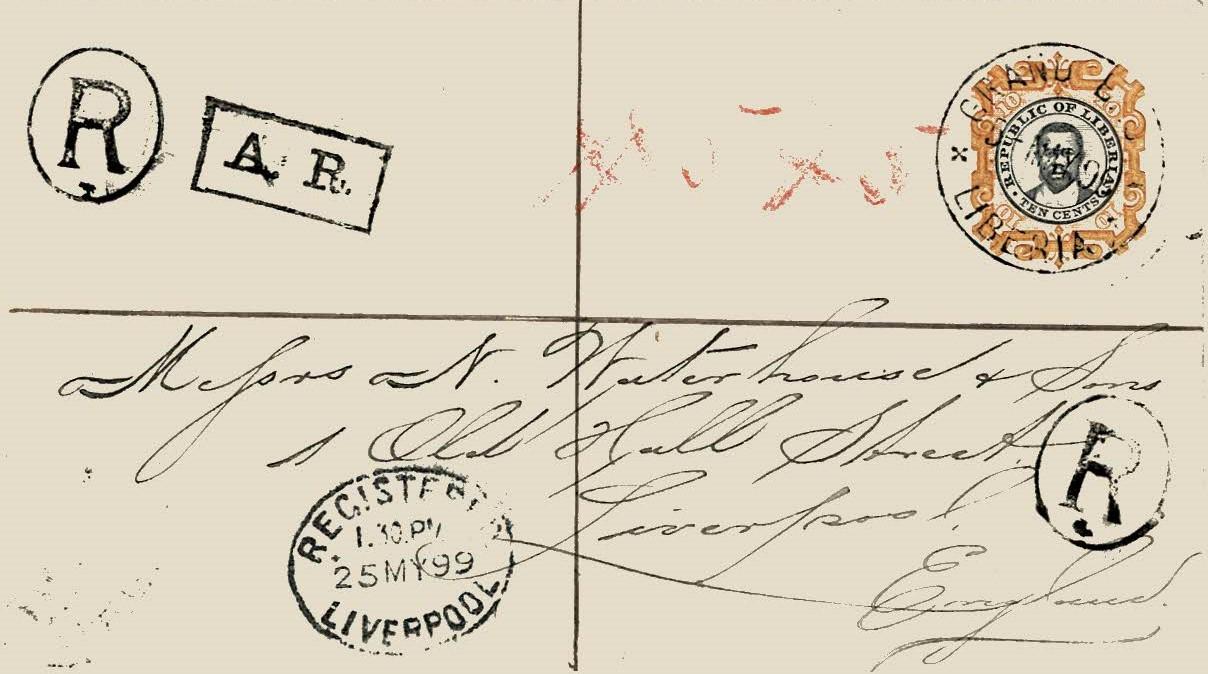 R
A. R.
GRAND
LIBERIA
REPUBLIC OF LIBERIA
TEN CENTS
10 10
10 10
Messrs N. Waterhouse & Sons
1 Old Hall Street
Liverpool.
England.
R
REGISTERED
1.30.PM
25MY99
LIVERPOOL